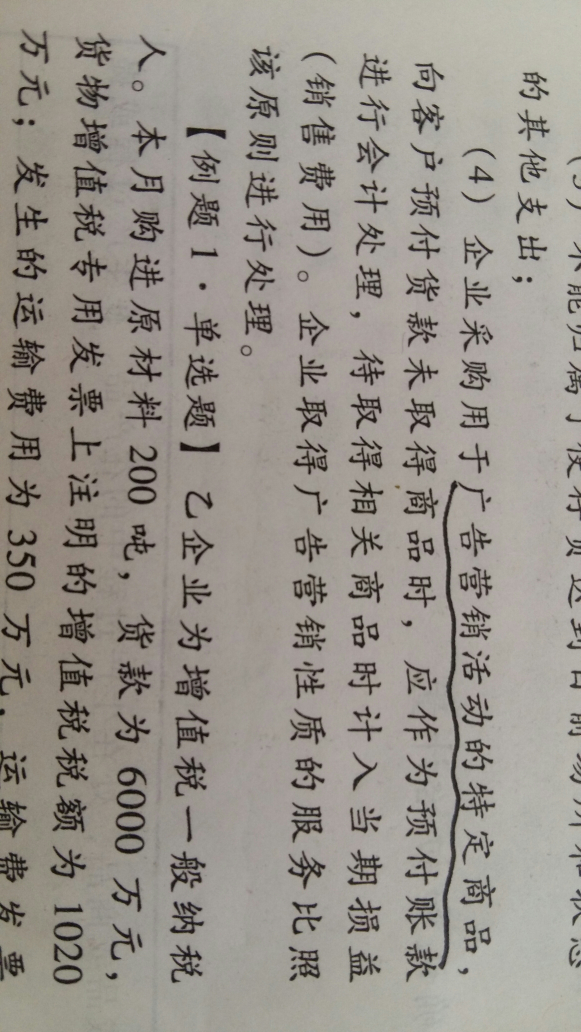 (3) 不能归属于使存货达到目前场所和状态
的其他支出；
(4) 企业采购用于广告营销活动的特定商品，
向客户预付货款未取得商品时，应作为预付账款
进行会计处理，待取得相关商品时计入当期损益
(销售费用)。企业取得广告营销性质的服务比照
该原则进行处理。
【例题1·单选题】乙企业为增值税一般纳税
人。本月购进原材料200吨，货款为6000万元，
货物增值税专用发票上注明的增值税税额为1020
万元；发生的运输费用为350万元，运输费发票